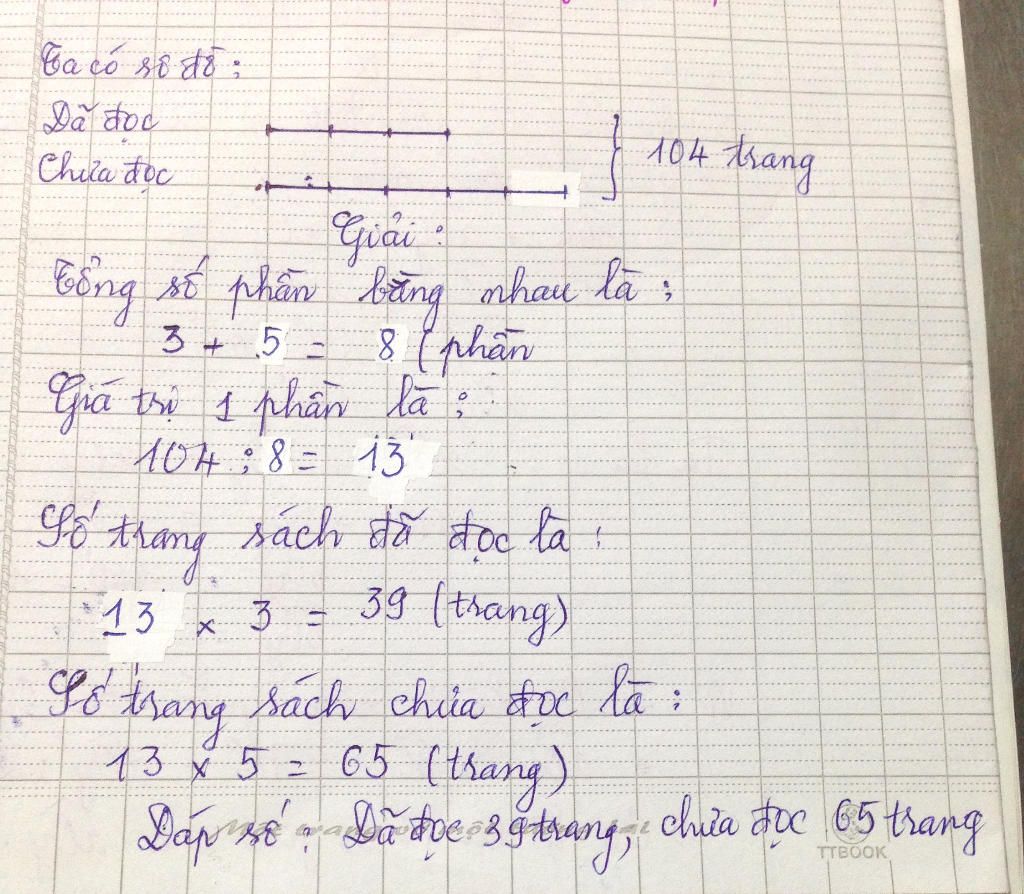 Ta có sơ đồ :
Đã đọc
Chưa đọc
104 trang
Giải :
Tổng số phần bằng nhau là :
3 + 5 = 8 ( phần
Giá trị 1 phần là :
104 : 8 = 13
Số trang sách đã đọc là :
13 x 3 = 39 (trang)
Số trang sách chưa đọc là :
13 x 5 = 65 (trang)
Đáp số : Đã đọc 39 trang, chưa đọc 65 trang
TTBOOK